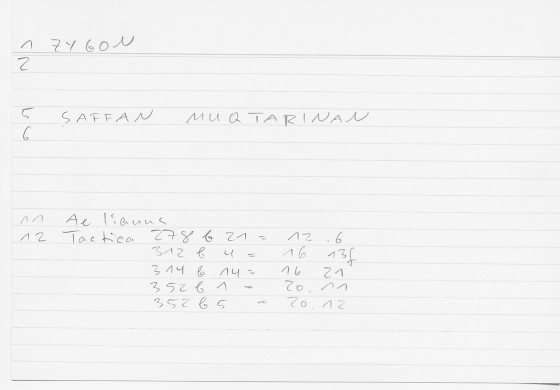 1 ZYGON
2
5 SAFFAN MUQTARINAN
6
11 Aelianus
12 Tactica 278 b 21 = 12.6
312 b 4 = 16 13f
314 b 14 = 16 21
352 b 1 = 20.11
352 b 5 = 20.12